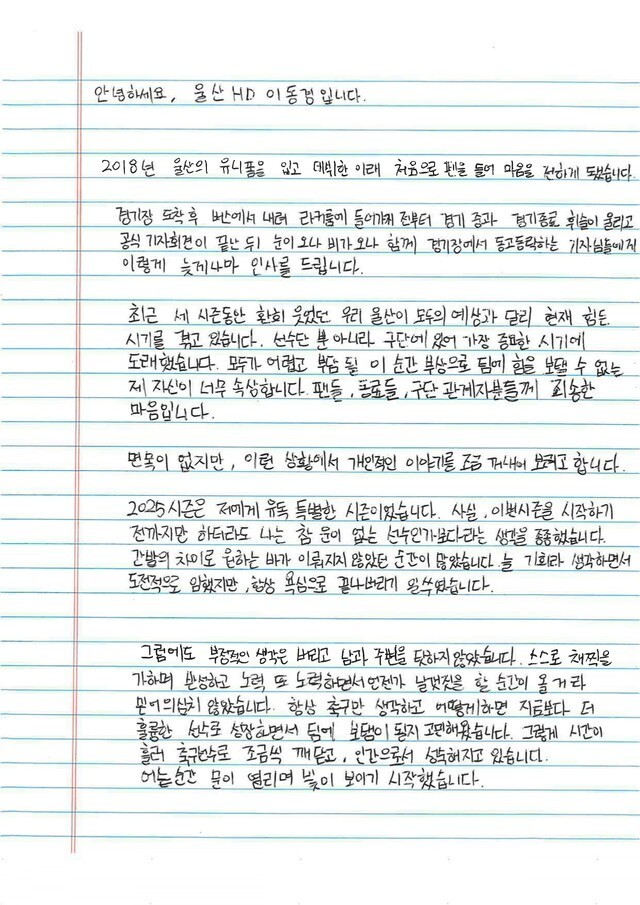 안녕하세요, 울산HD 이동경입니다.
2018년 울산의 유니폼을 입고 데뷔한 이래 처음으로 펜을 들어 마음을 전하게 됐습니다.
경기장 도착 후 버스에서 내려 라커룸에 들어가기 전부터 경기 중과 경기종료 휘슬이 울리고
공식 기자회견이 끝난 뒤 눈이오나 비가오나 함께 경기장에서 동고동락하는 기자님들에게
이렇게 늦게나마 인사를 드립니다.
최근 세 시즌동안 환히 웃었던 우리 울산이 모두의 예상과 달리 현재 힘든
시기를 겪고 있습니다. 선수단 뿐 아니라 구단에 있어 가장 중요한 시기에
도래했습니다. 모두가 어렵고 부담 될 이 순간 부상으로 팀에 힘을 보탤 수 없는
제 자신이 너무 속상합니다. 팬들, 동료들, 구단 관계자분들께 죄송한
마음입니다.
면목이 없지만, 이런 상황에서 개인적인 이야기를 조금 꺼내어 보려고 합니다.
2025시즌은 저에게 유독 특별한 시즌이었습니다. 사실, 이번시즌을 시작하기
전까지만 하더라도 나는 참 운이 없는 선수인가보다라는 생각을 종종했습니다.
간발의 차이로 원하는 바가 이뤄지지 않았던 순간이 많았습니다. 늘 기회라 생각하면서
도전적으로 임했지만, 항상 욕심으로 끝나버리기 일쑤였습니다.
그럼에도 부정적인 생각은 버리고 남과 주변을 탓하지않았습니다. 스스로 채찍을
가하며 반성하고 노력 또 노력하면서 언젠가 날갯짓을 할 순간이 올 거라
믿어 의심치 않았습니다. 항상 축구만 생각하고 어떻게하면 지금보다 더
훌륭한 선수로 성장하면서 팀에 보탬이 될지 고민해왔습니다. 그렇게 시간이
흘러 축구선수로 조금씩 깨닫고, 인간으로서 성숙해지고 있습니다.
어느순간 문이 열리며 빛이 보이기 시작했습니다.